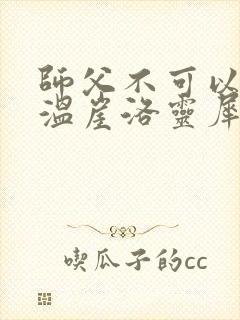 師父不可以
溫崖洛靈犀
喫瓜子的cc